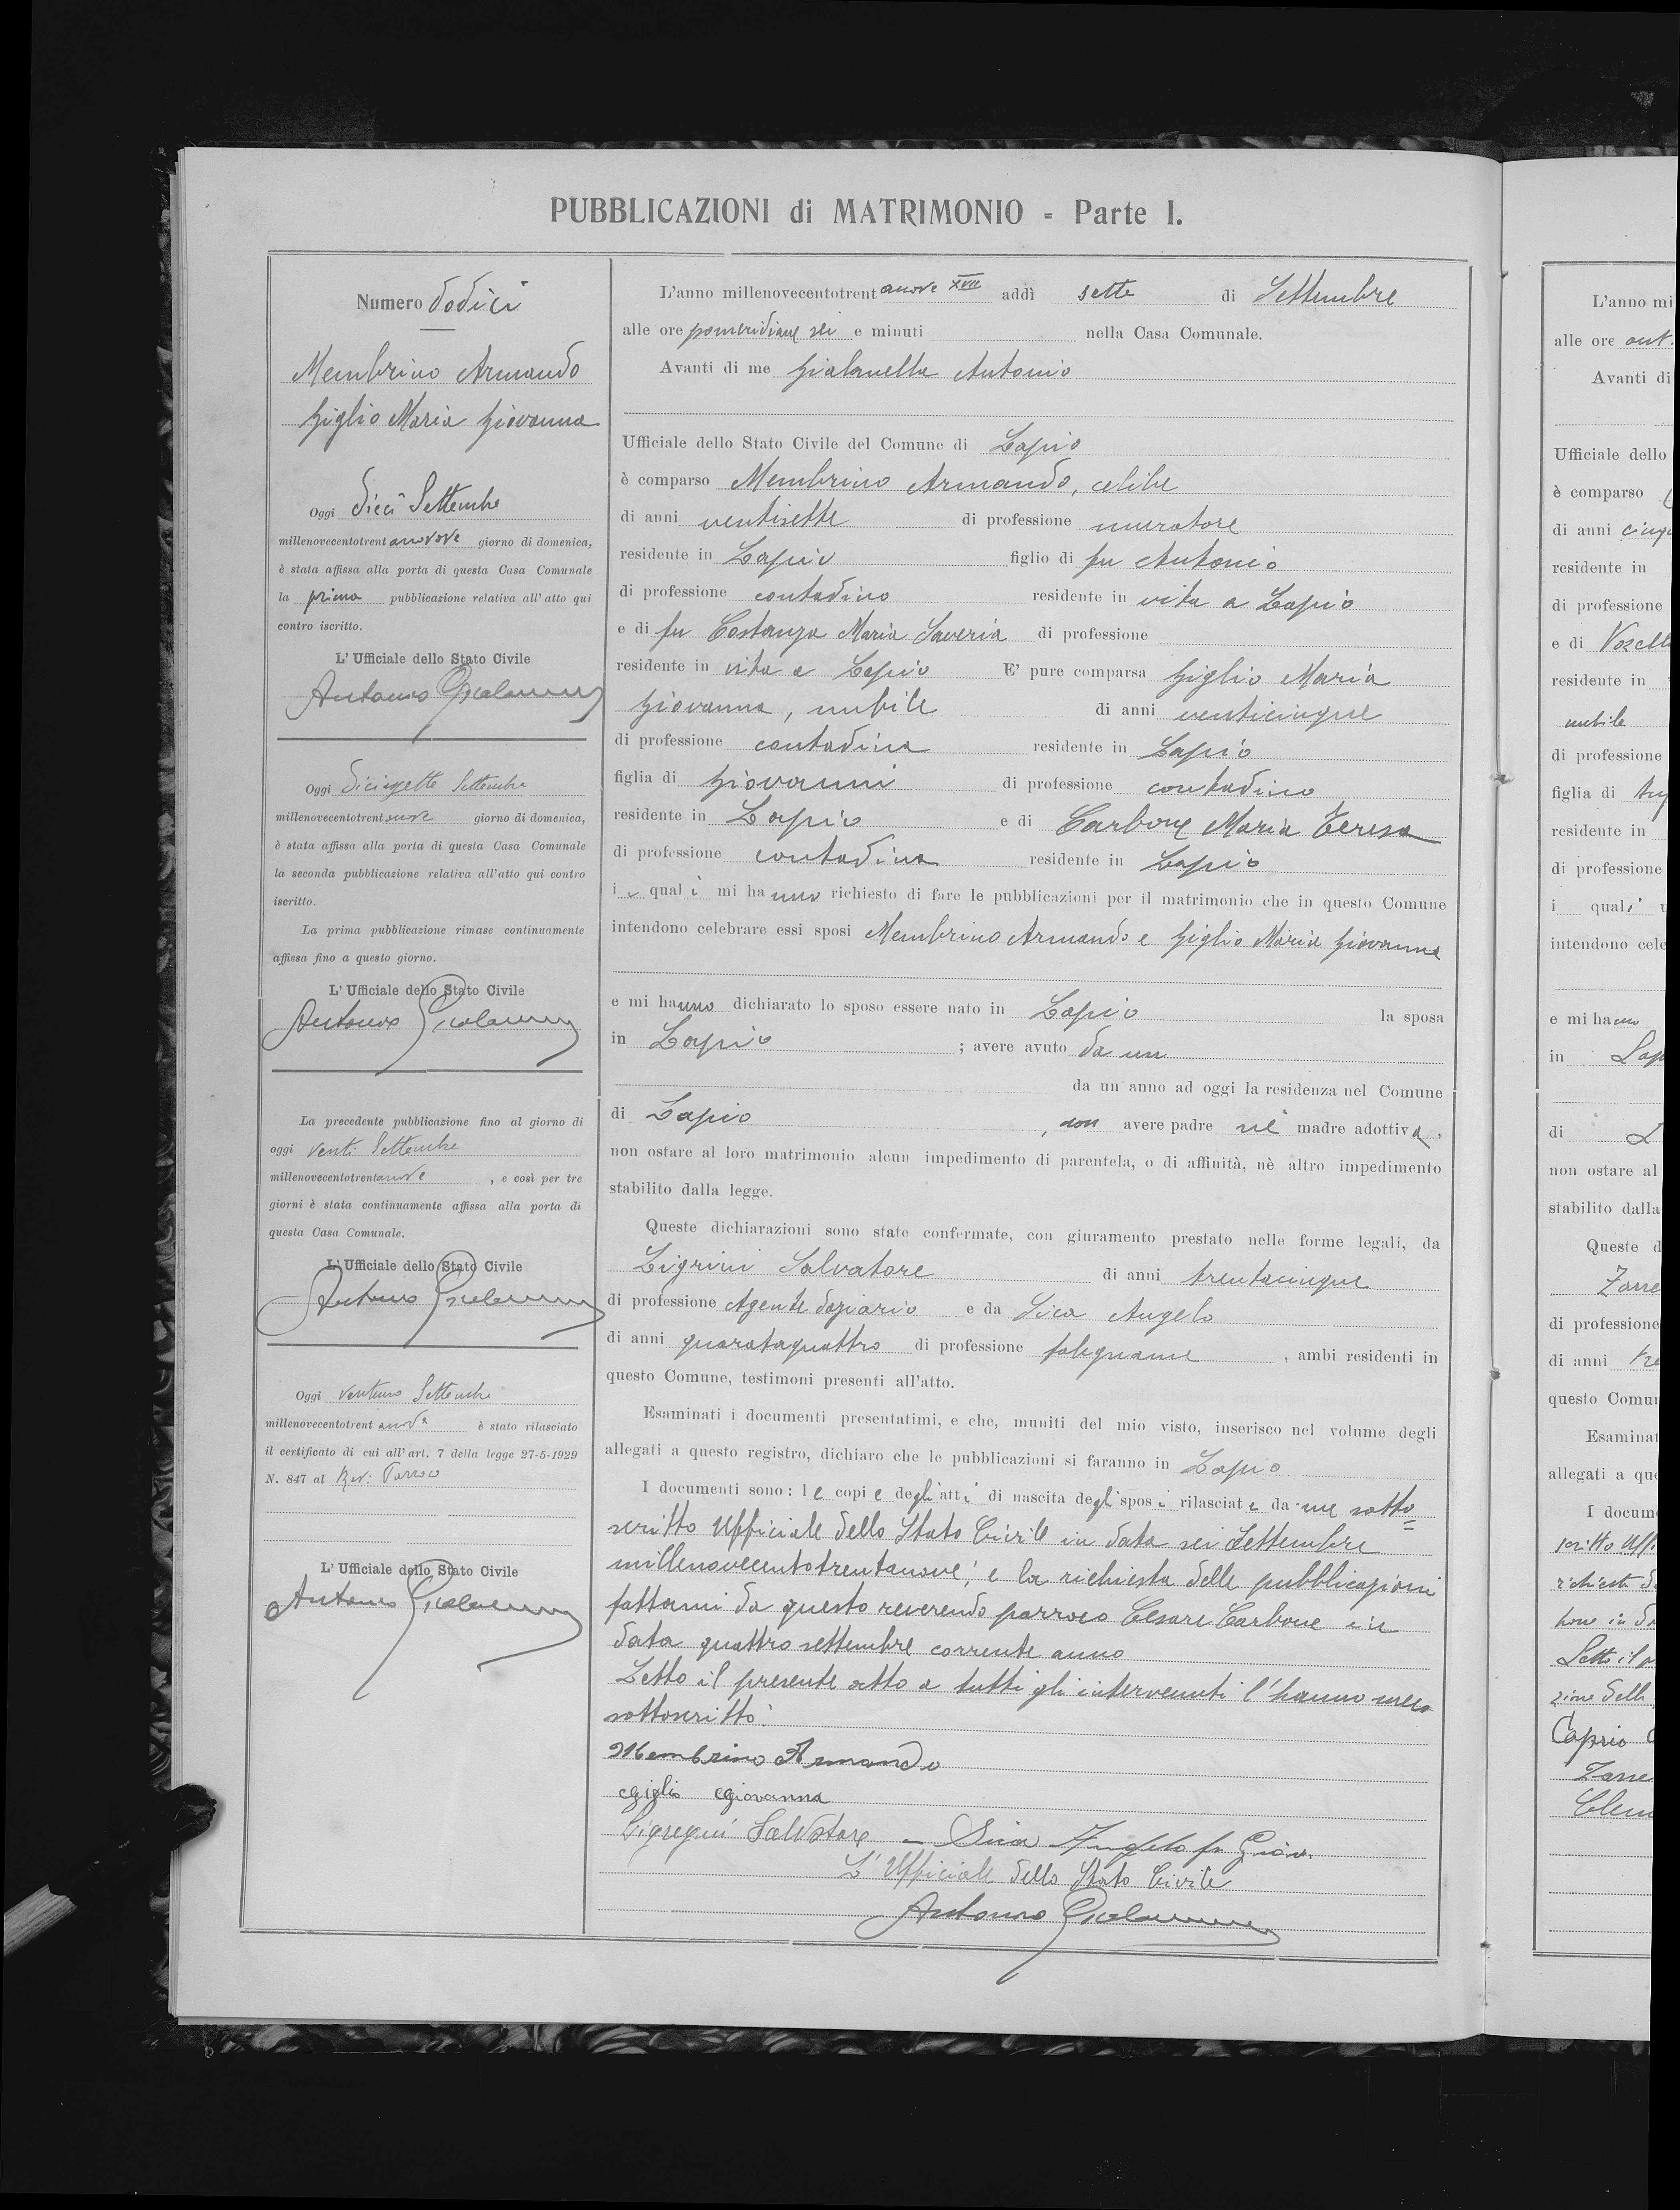 PUBBLICAZIONI di MATRIMONIO - Parte I.
Numero dodici
Membrino Armando
Giglio Maria Giovanna
Oggi dieci Settembre
millenovecentotrentanove giorno di domenica,
è stata affissa alla porta di questa Casa Comunale
la prima pubblicazione relativa all'atto qui
contro iscritto.
L'Ufficiale dello Stato Civile
Antonio
Oggi diciasette Settembre
millenovecentotrentanove giorno di domenica,
è stata affissa alla porta di questa Casa Comunale
la seconda pubblicazione relativa all'atto qui contro
iscritto.
La prima pubblicazione rimase continuamente
affissa fino a questo giorno.
L'Ufficiale dello Stato Civile
Antonio
La precedente pubblicazione fino al giorno di
oggi venti Settembre
millenovecentotrentanove, e così per tre
giorni è stata continuamente affissa alla porta di
questa Casa Comunale.
L'Ufficiale dello Stato Civile
Antonio
Oggi ventuno Settembre
millenovecentotrentanove è stato rilasciato
il certificato di cui all'art. 7 della legge 27-5-1929
N. 847 al Rev: Parroco
L'Ufficiale dello Stato Civile
Antonio
L'anno millenovecentotrentanove XVII addì sette di Settembre
alle ore pomeridiane sei e minuti nella Casa Comunale.
Avanti di me Gialanella Antonio
Ufficiale dello Stato Civile del Comune di Lapio
è comparso Membrino Armando, celibe
di anni ventisette di professione muratore
residente in Lapio figlio di fu Antonio
di professione contadino residente in vita a Lapio
e di fu Costanza Maria Saveria di professione
residente in vita a Lapio E' pure comparsa Giglio Maria
Giovanna, nubile di anni venticinque
di professione contadina residente in Lapio
figlia di Giovanni di professione contadino
residente in Lapio e di Carbone Maria Teresa
di professione contadina residente in Lapio
i quali mi hanno richiesto di fare le pubblicazioni per il matrimonio che in questo Comune
intendono celebrare essi sposi Membrino Armando e Giglio Maria Giovanna
e mi hanno dichiarato lo sposo essere nato in Lapio la sposa
in Lapio ; avere avuto da un
da un anno ad oggi la residenza nel Comune
di Lapio , non avere padre nè madre adottiva,
non ostare al loro matrimonio alcun impedimento di parentela, o di affinità, nè altro impedimento
stabilito dalla legge.
Queste dichiarazioni sono state confermate, con giuramento prestato nelle forme legali, da
Ligrini Salvatore di anni trentacinque
di professione Agente daziario e da Sica Angelo
di anni quarataquattro di professione falegname, ambi residenti in
questo Comune, testimoni presenti all'atto.
Esaminati i documenti presentatimi, e che, muniti del mio visto, inserisco nel volume degli
allegati a questo registro, dichiaro che le pubblicazioni si faranno in Lapio
I documenti sono: le copie degli atti di nascita degli sposi rilasciate da me sotto=
scritto Ufficiale dello Stato Civile in data sei Settembre
millenovecentotrentanove; e la richiesta delle pubblicazioni
fattami da questo reverendo parroco Cesare Carbone in
data quattro settembre corrente anno
Letto il presente atto a tutti gli intervenuti l'hanno meco
sottoscritto.
Membrino Armando
Giglio Giovanna
Salvatore - Sica Angelo fu Giov.
L'Ufficiale dello Stato Civile
Antonio
L'anno mi
alle ore ant.
Avanti di
Ufficiale dello
è comparso
di anni cinq
residente in
di professione
e di
residente in
nubile
di professione
figlia di
residente in
di professione
i quali
intendono cele
e mi hanno
in Lap
di L
non ostare al
stabilito dalla
Queste d
di professione
di anni
questo Comun
Esaminat
allegati a que
I docum
Caprio